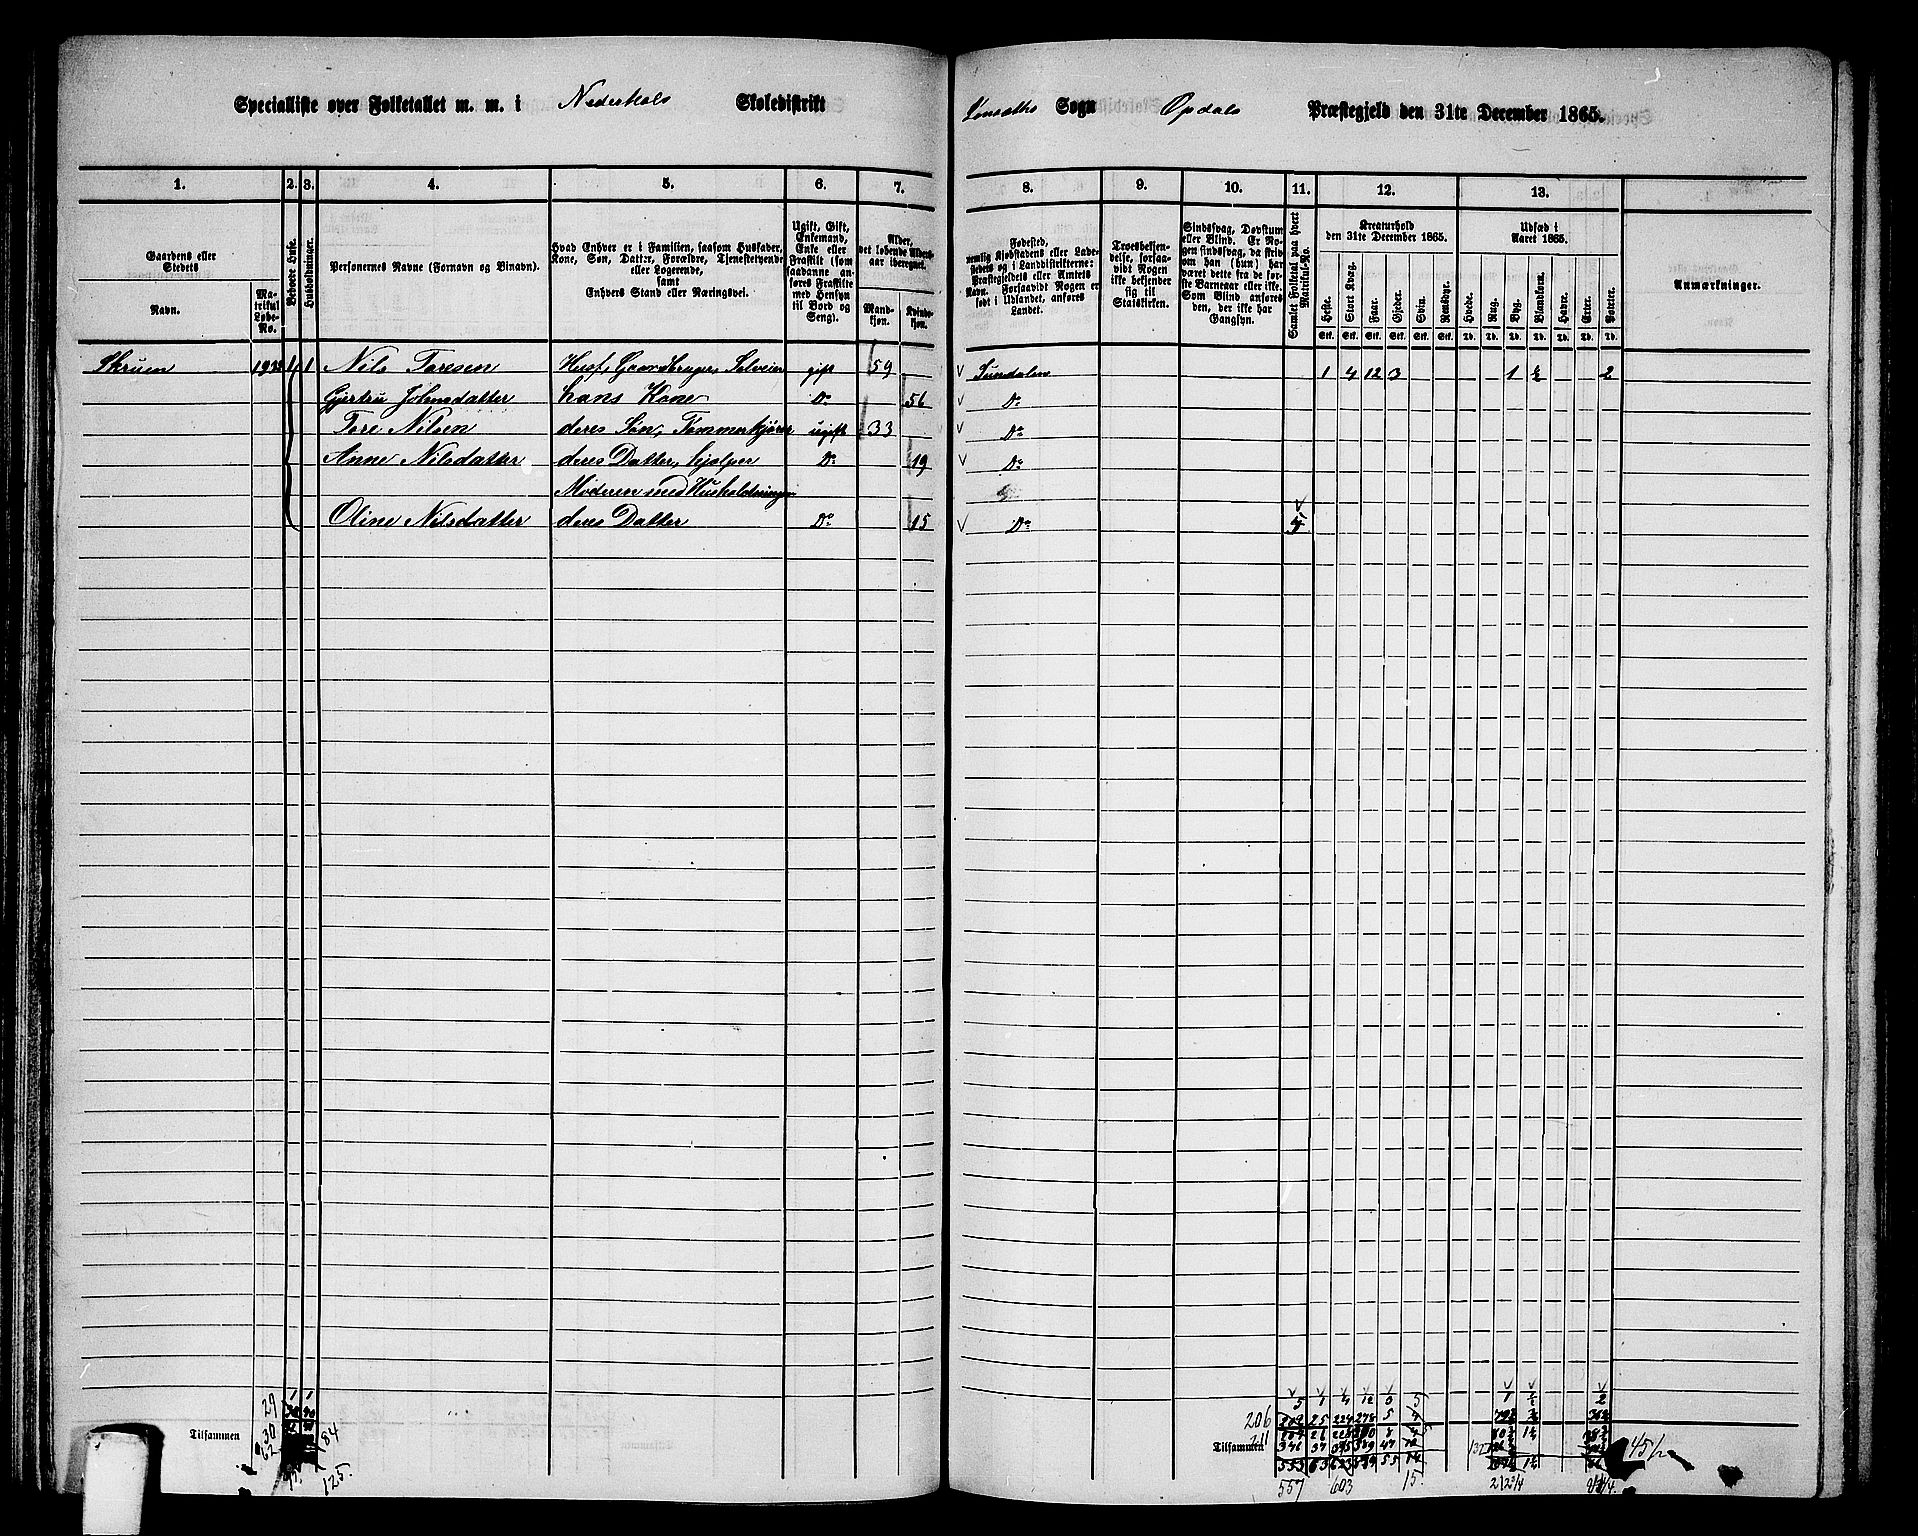 Specialliste over Folketallet m. m. i Nederhols Skoledistrikt
Sogn Opdals Præstegjeld den 31te December 1865.
1. 2. 3. 4. 5. 6. 7. 8. 9. 10. 11. 12. 13.
Gaardens eller Stedets
Navn.
Matrikul Løbe-No.
Beboede Huse.
Husholdninger.
Personernes Navne (Fornavn og Binavn).
Hvad Enhver er i Familien, saasom Husfader, Kone, Søn, Datter, Forældre, Tjenestetyende eller Logerende, samt Enhvers Stand eller Næringsvei.
Ugift, Gift, Enkemand, Enke eller Fraskilt (som saadanne anføres Fraskilte med Hensyn til Bord og Seng).
Alder, det løbende Alders-aar iberegnet.
Mand-kjøn.
Kvinde-kjøn.
Fødested, nemlig Kjøbstadens eller Ladestedets og i Landdistrikterne: Præstegjeldets eller Amtets Navn. Forsaavidt Nogen er født i Udlandet, anføres Landet.
Troesbekjendelse, forsaavidt Nogen ikke bekjender sig til Statskirken.
Sindssvag, Døvstum eller Blind. Er Nogen sindssvag, da skrives om han (hun) har været dette fra de første Barneaar eller ikke. Som Blind anføres den, der ikke har Gangsyn.
Samlet Folketal paa hvert Matrikul-No.
Kreaturhold den 31te December 1865.
Heste. Stort Kvæg. Faar. Gjeder. Svin. Rensdyr.
Udsæd i Aaret 1865.
Hvede. Rug. Byg. Blandkorn. Havre. Erter. Poteter.
Stk. Stk. Stk. Stk. Stk. Stk. Td. Td. Td. Td. Td. Td. Td.
Anmærkninger.
Skruen 1 1 Nils Toresen Husf., Gaardbruger, Selveier gift 59 Sundalen 1 4 12 3 1 ½ 2
Gjertru Johnsdatter hans Kone Do 56 Do
Tore Nilsen deres Søn, Tømmerkjører ugift 33 Do
Anne Nilsdatter deres Datter, hjælper Do 19 Do
Moderen med Husholdningen
Oline Nilsdatter deres Datter Do 15 Do 5
Tilsammen
29 230 62 84 125.
Tilsammen
206 211
557 603 15 212¾